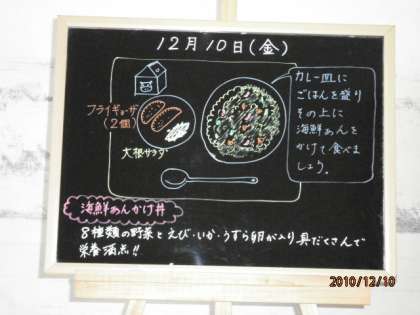 12月10日(金)
フライギョーザ
(2個)
大根サラダ
カレー皿に
ごはんを盛り
その上に
海鮮あんを
かけて食べま
しょう。
海鮮あんかけ丼
8種類の野菜とえび・いか・うずら卵が入り具だくさんで
栄養満点!!
2010/12/10